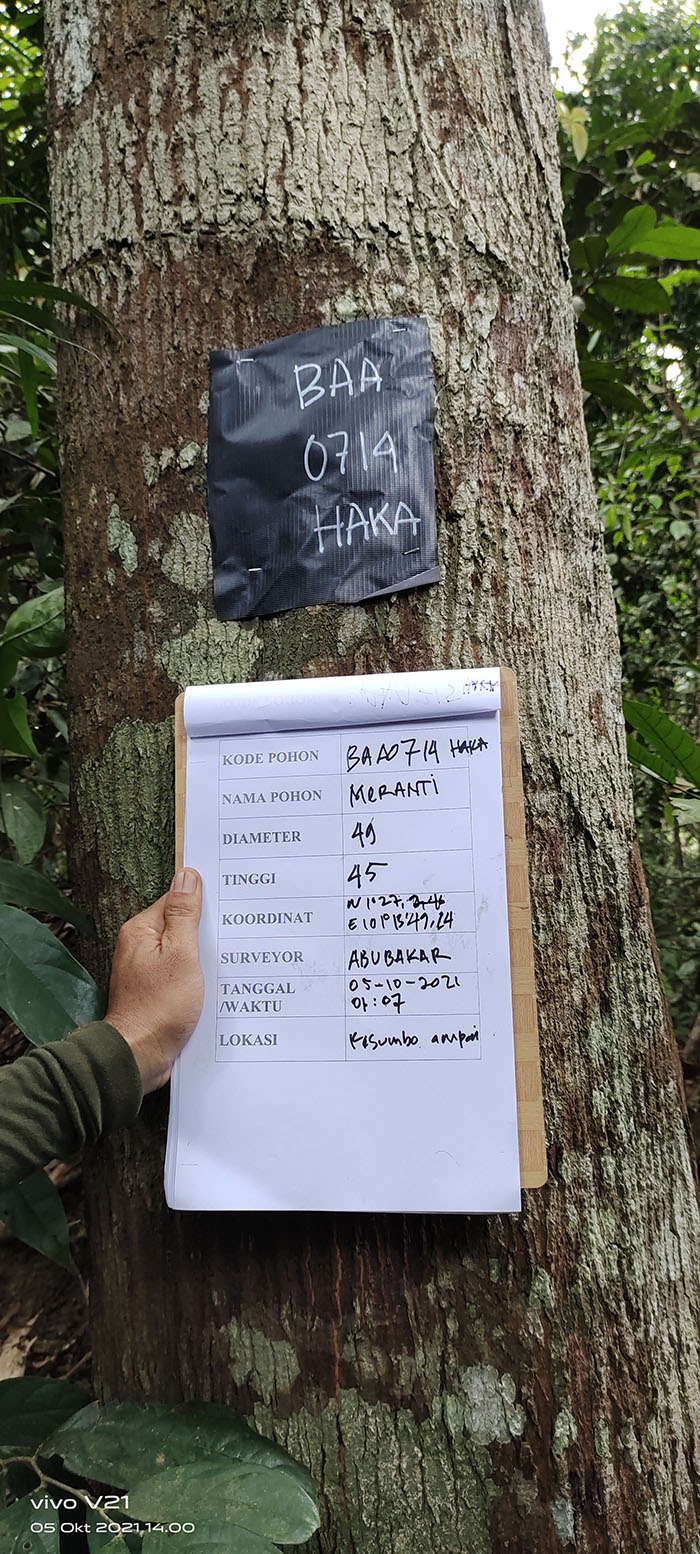 BAA
0714
HAKA
KODE POHON BAA0714 HAKA
NAMA POHON MERANTI
DIAMETER 49
TINGGI 45
KOORDINAT N 1°27,
E 101°13'49,
SURVEYOR ABUBAKAR
TANGGAL 05-10-2021
/WAKTU 01:07
LOKASI Kesumbo ampai
vivo V21
05 Okt 2021, 14.00